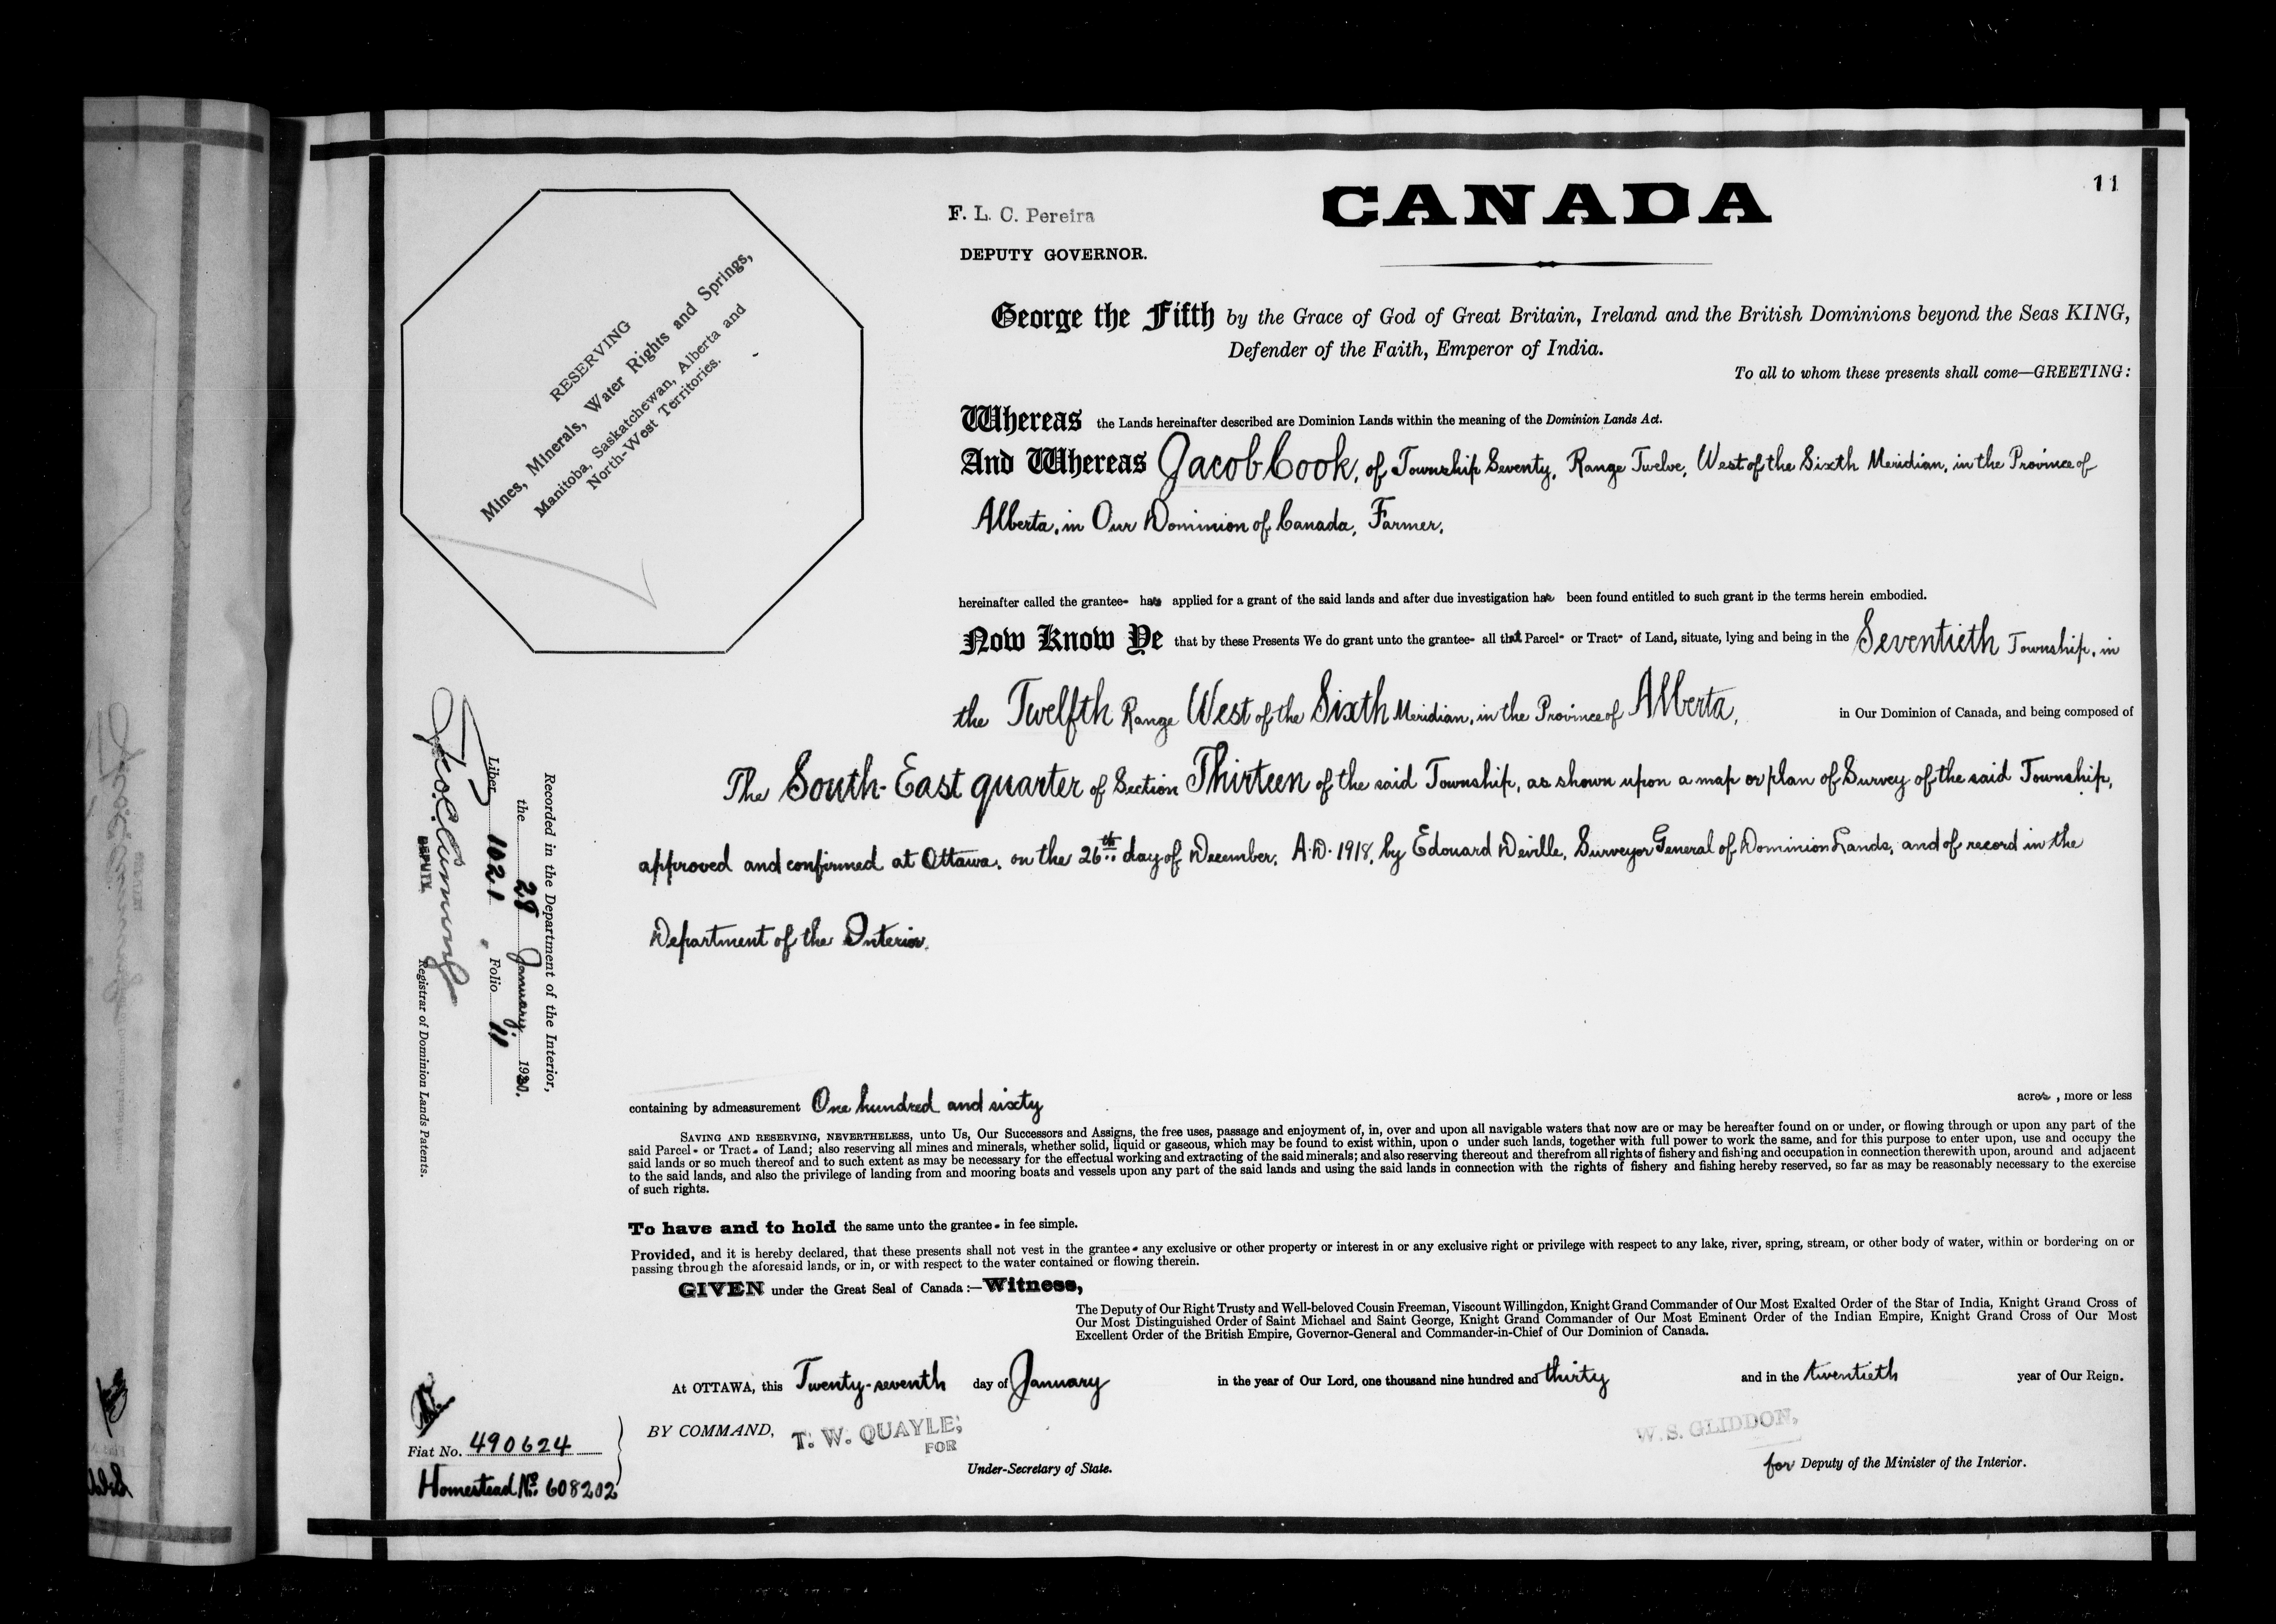 11
CANADA
F. L. C. Pereira
DEPUTY GOVERNOR.
RESERVING
Mines, Minerals, Water Rights and Springs,
Manitoba, Saskatchewan, Alberta and
North-West Territories.
George the Fifth by the Grace of God of Great Britain, Ireland and the British Dominions beyond the Seas KING,
Defender of the Faith, Emperor of India.
To all to whom these presents shall come—GREETING:
Whereas the Lands hereinafter described are Dominion Lands within the meaning of the Dominion Lands Act.
And Whereas Jacob Cook, of Township Seventy, Range Twelve, West of the Sixth Meridian, in the Province of
Alberta, in Our Dominion of Canada, Farmer,
hereinafter called the grantee- has applied for a grant of the said lands and after due investigation has been found entitled to such grant in the terms herein embodied.
Now Know Ye that by these Presents We do grant unto the grantee- all that Parcel- or Tract- of Land, situate, lying and being in the Seventieth Township, in
the Twelfth Range West of the Sixth Meridian, in the Province of Alberta, in Our Dominion of Canada, and being composed of
The South-East quarter of Section Thirteen of the said Township, as shown upon a map or plan of Survey of the said Township,
approved and confirmed at Ottawa, on the 26th day of December, A.D. 1918, by Edouard Deville, Surveyor General of Dominion Lands, and of record in the
Department of the Interior.
Recorded in the Department of the Interior,
the 28 January 1930.
Liber 1021 Folio 11
DEPUTY
Registrar of Dominion Lands Patents.
containing by admeasurement One hundred and sixty acres, more or less
SAVING AND RESERVING, NEVERTHELESS, unto Us, Our Successors and Assigns, the free uses, passage and enjoyment of, in, over and upon all navigable waters that now are or may be hereafter found on or under, or flowing through or upon any part of the
said Parcel- or Tract- of Land; also reserving all mines and minerals, whether solid, liquid or gaseous, which may be found to exist within, upon o under such lands, together with full power to work the same, and for this purpose to enter upon, use and occupy the
said lands or so much thereof and to such extent as may be necessary for the effectual working and extracting of the said minerals; and also reserving thereout and therefrom all rights of fishery and fishing and occupation in connection therewith upon, around and adjacent
to the said lands, and also the privilege of landing from and mooring boats and vessels upon any part of the said lands and using the said lands in connection with the rights of fishery and fishing hereby reserved, so far as may be reasonably necessary to the exercise
of such rights.
To have and to hold the same unto the grantee- in fee simple.
Provided, and it is hereby declared, that these presents shall not vest in the grantee- any exclusive or other property or interest in or any exclusive right or privilege with respect to any lake, river, spring, stream, or other body of water, within or bordering on or
passing through the aforesaid lands, or in, or with respect to the water contained or flowing therein.
GIVEN under the Great Seal of Canada:—Witness,
The Deputy of Our Right Trusty and Well-beloved Cousin Freeman, Viscount Willingdon, Knight Grand Commander of Our Most Exalted Order of the Star of India, Knight Grand Cross of
Our Most Distinguished Order of Saint Michael and Saint George, Knight Grand Commander of Our Most Eminent Order of the Indian Empire, Knight Grand Cross of Our Most
Excellent Order of the British Empire, Governor-General and Commander-in-Chief of Our Dominion of Canada.
At OTTAWA, this Twenty-seventh day of January in the year of Our Lord, one thousand nine hundred and thirty and in the twentieth year of Our Reign.
BY COMMAND, T. W. QUAYLE,
FOR
Under-Secretary of State.
W. S. GLIDDON,
for Deputy of the Minister of the Interior.
Fiat No. 490624
Homestead No. 608202